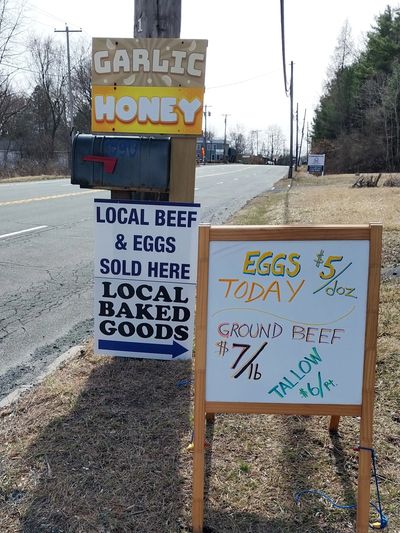 GARLIC
HONEY
LOCAL BEEF
& EGGS
SOLD HERE
LOCAL
BAKED
GOODS
EGGS $5/doz
TODAY
GROUND BEEF
$7/lb
TALLOW
$6/Pt.